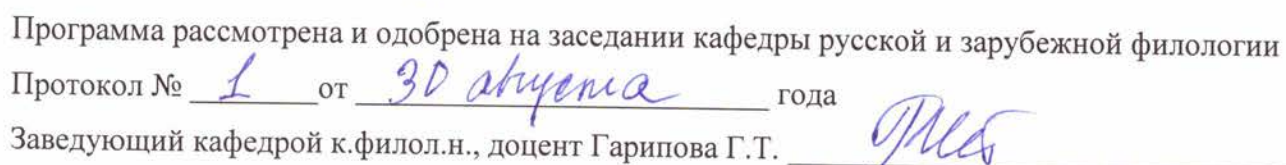 Программа рассмотрена и одобрена на заседании кафедры русской и зарубежной филологии
Протокол № 1 от 30 августа года
Заведующий кафедрой к.филол.н., доцент Гарипова Г.Т.